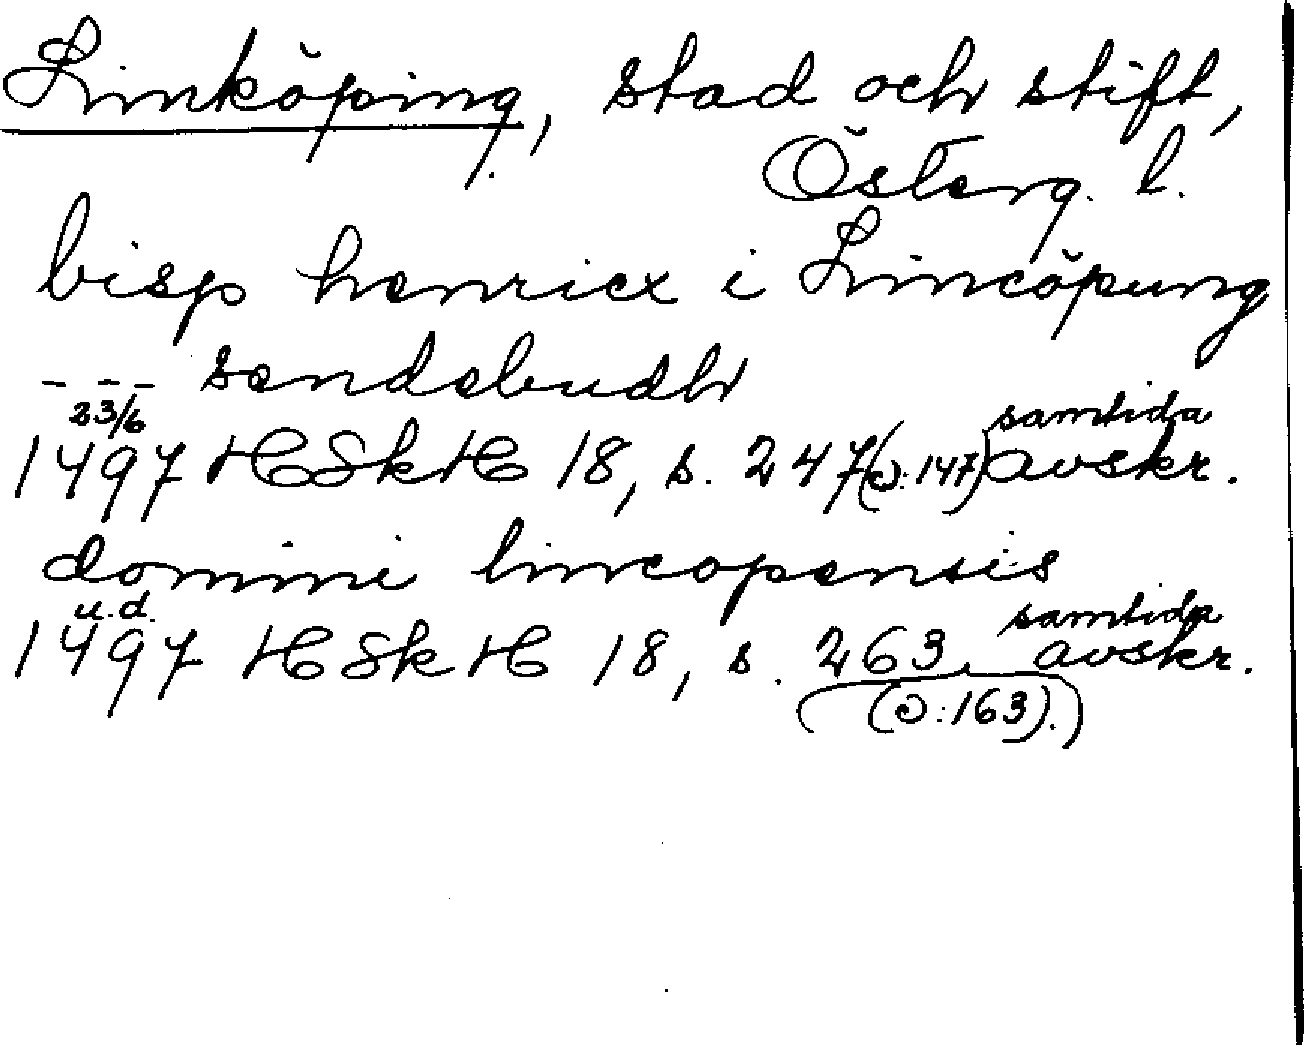 Linköping, stad och stift,
Österg. l.
bisp henricx i Lincöpung
- - - sendebudh
23/6
1497 HSkH 18, s. 247 (ɔ: 147) samtida avskr.
domini lincopensis
u.d.
1497 HSkH 18, s. 263 samtida avskr.
(ɔ: 163).)